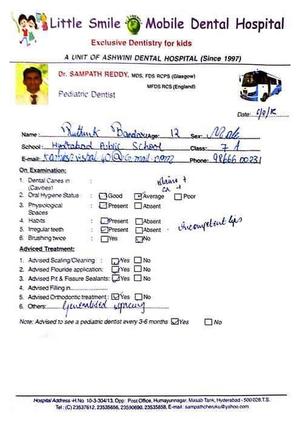 Little Smile Mobile Dental Hospital
Exclusive Dentistry for kids
A UNIT OF ASHWINI DENTAL HOSPITAL (Since 1997)
Dr. SAMPATH REDDY, MDS, FDS RCPS (Glasgow)
MFDS RCS (England)
Pediatric Dentist
Date:
Name: 12 Sex: Male
School: Hyderabad Public School Class: 7 A
E-mail: Phone: 98666 00231
On Examination:
1. Dental Caries in (Cavities) :
2. Oral Hygiene Status : Good Average Poor
3. Physiological Spaces : Present Absent
4. Habits : Present Absent
5. Irregular teeth : Present Absent incompetent lips
6. Brushing twice : Yes No
Adviced Treatment:
1. Advised Scaling/Cleaning : Yes No
2. Advised Flouride application: Yes No
3. Advised Pit & Fissure Sealants: Yes No
4. Advised Filling in
5. Advised Orthodontic treatment : Yes No
6. Others: Generalised spacing
Note: Advised to see a pediatric dentist every 3-6 months Yes No
Hospital Address -H.No. 10-3-304/13, Opp: Post Office, Humayunnagar, Masab Tank, Hyderabad - 500 028.T.S.
Tel : (C) 23537612, 23535656, 23590690, 23535858, E-mail : sampathcheruku@yahoo.com